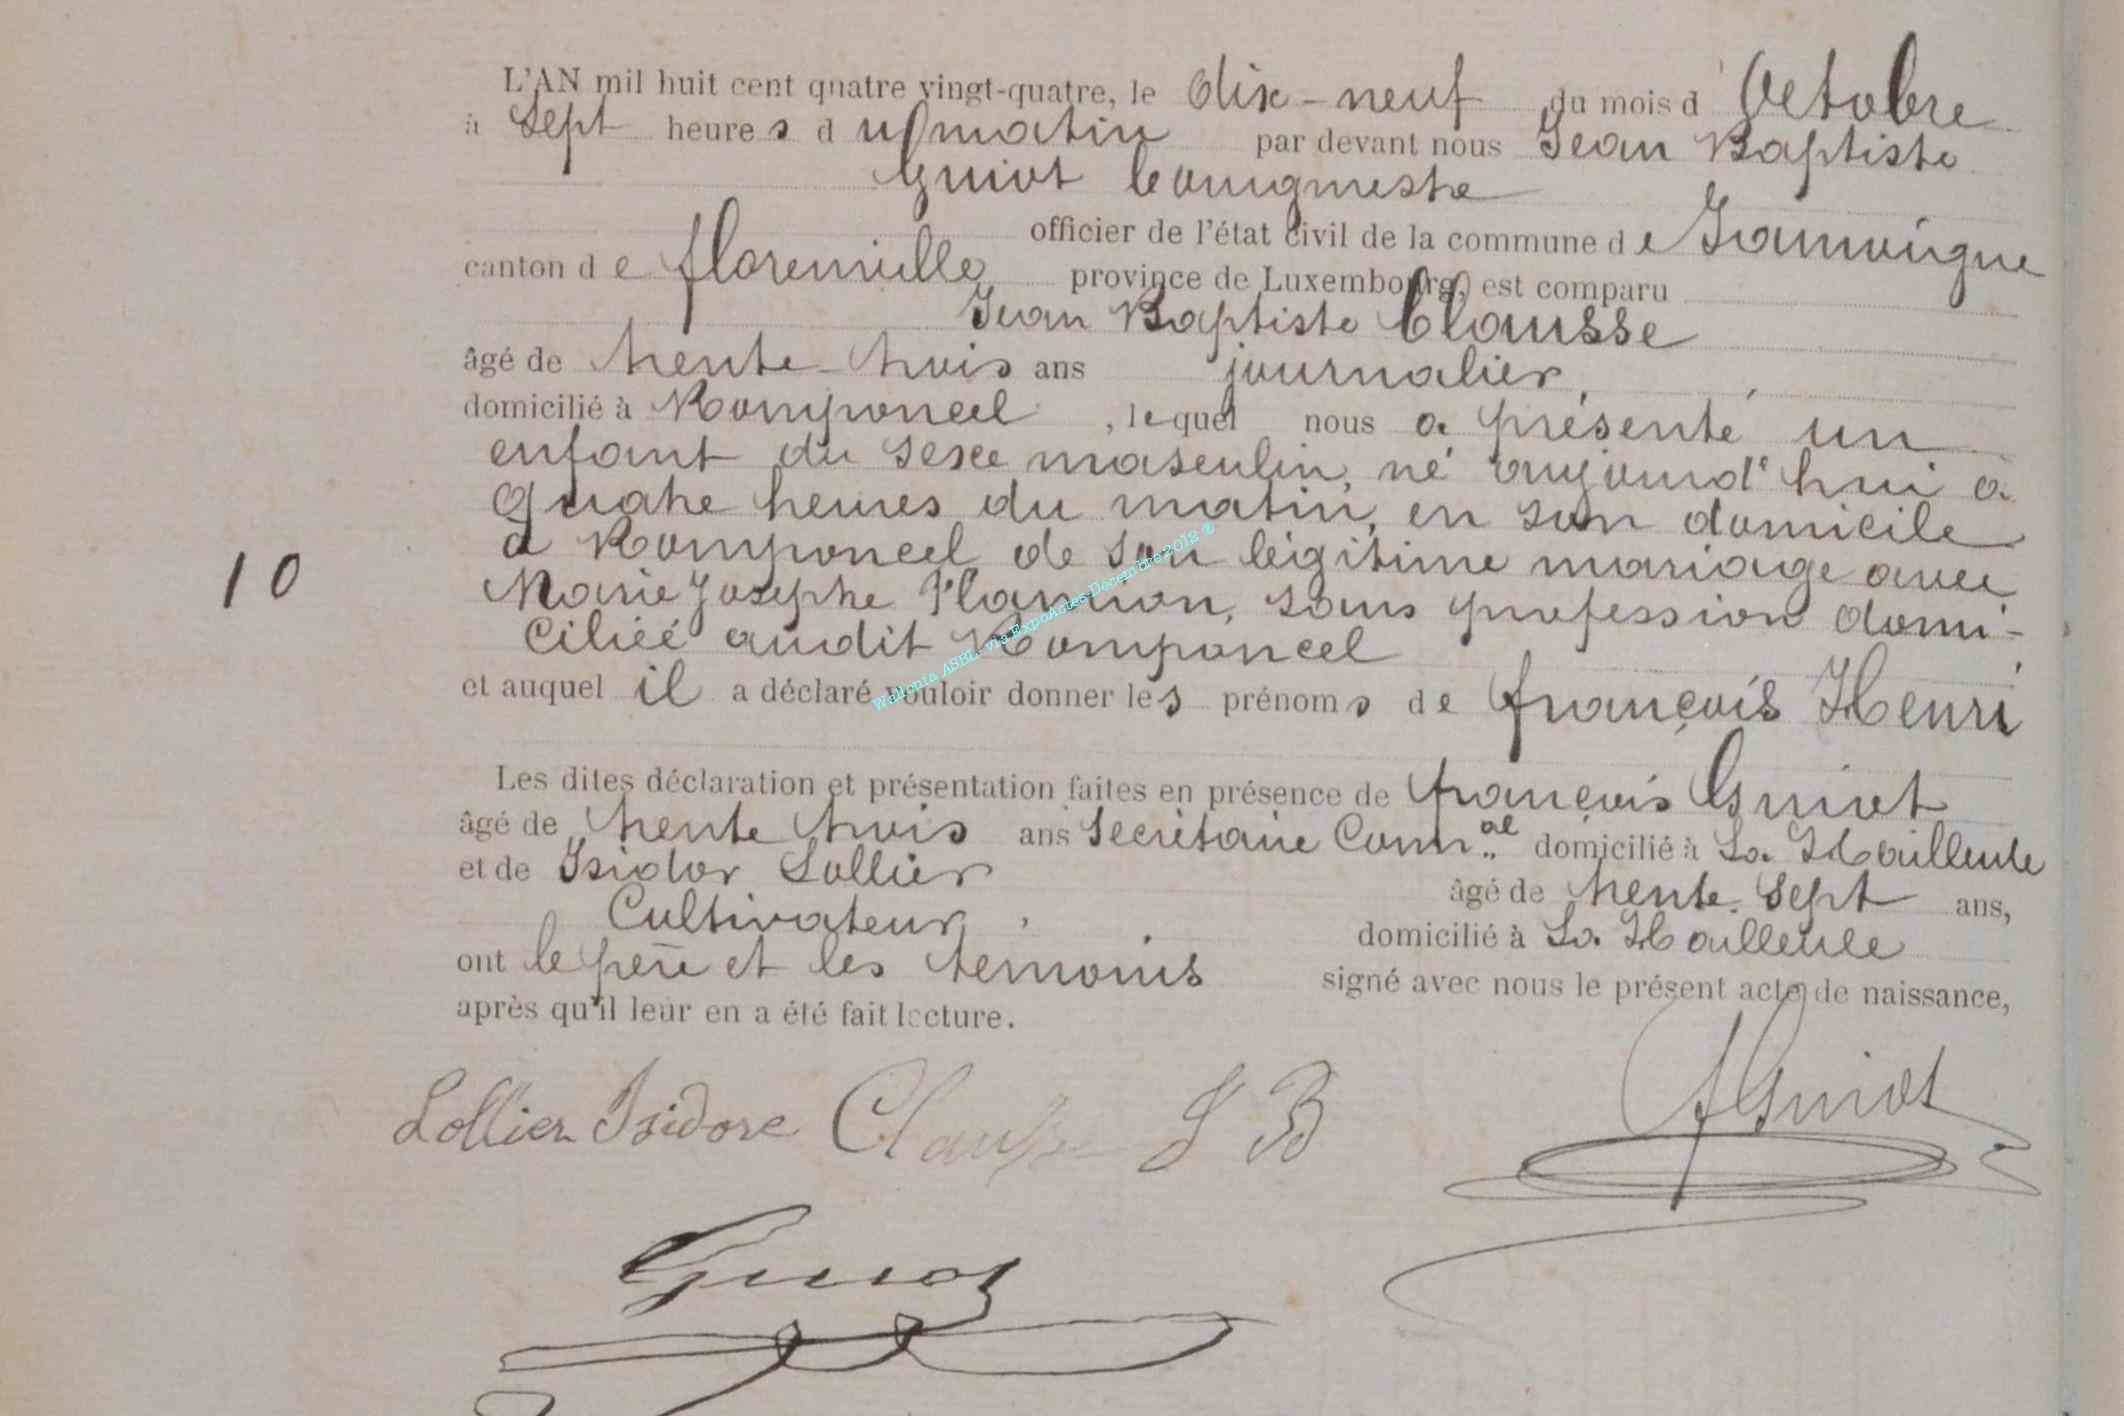 L'AN mil huit cent quatre vingt-quatre, le dix-neuf du mois d'Octobre
à sept heures du matin par devant nous Jean Baptiste
Guiot bourgmestre
officier de l'état civil de la commune de Jamoigne
canton de florenville province de Luxembourg, est comparu
Jean Baptiste Clausse
âgé de trente-trois ans journalier,
domicilié à Romponcel, lequel nous a présenté un
enfant du sexe masculin, né aujourd'hui à
quatre heures du matin, en son domicile
à Romponcel de son légitime mariage avec
Marie Josephe Plamion, sans profession domi-
ciliée audit Romponcel
et auquel il a déclaré vouloir donner les prénoms de françois Henri
Les dites déclaration et présentation faites en présence de françois Guiot
âgé de trente trois ans Secrétaire Comm.al domicilié à La Hailleule
et de Isidor Lollier âgé de trente sept ans,
Cultivateur, domicilié à La Hailleule
ont le père et les temoins signé avec nous le présent acte de naissance,
après qu'il leur en a été fait lecture.
10
Wallonia ASBL via ExpoActes-Décembre 2012 ®
Lollier Isidore Clausse J B FGuiot
Guiot